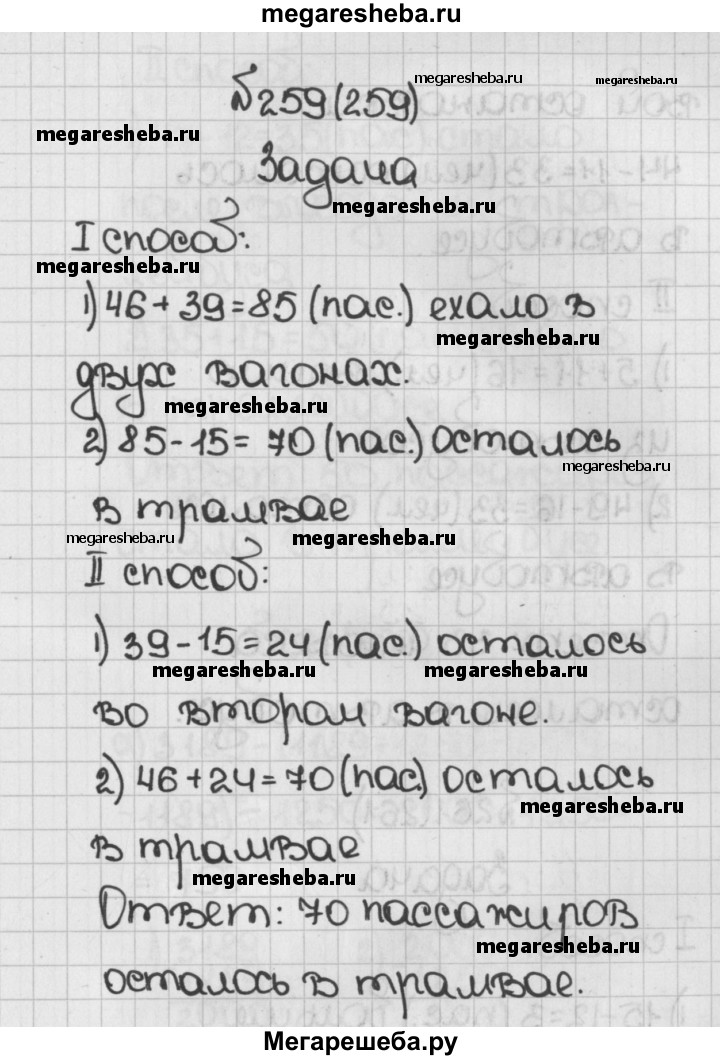 megaresheba.ru
№259(259)
megaresheba.ru
megaresheba.ru
megaresheba.ru
Задача
megaresheba.ru
I способ:
megaresheba.ru
1) 46 + 39 = 85 (пас.) ехало в
megaresheba.ru
двух вагонах.
megaresheba.ru
2) 85 - 15 = 70 (пас.) осталось
megaresheba.ru
в трамвае
megaresheba.ru
megaresheba.ru
II способ:
1) 39 - 15 = 24 (пас.) осталось
megaresheba.ru
megaresheba.ru
во втором вагоне.
2) 46 + 24 = 70 (пас.) осталось
megaresheba.ru
в трамвае
megaresheba.ru
Ответ: 70 пассажиров
megaresheba.ru
осталось в трамвае.
Мегарешеба.ру